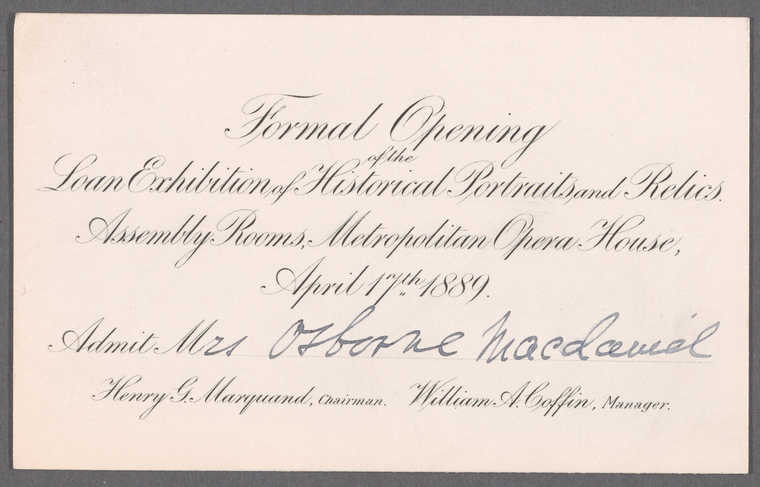 Formal Opening
of the
Loan Exhibition of Historical Portraits and Relics.
Assembly Rooms, Metropolitan Opera House,
April 17th 1889.
Admit Mrs Osborne Macdaniel
Henry G. Marquand, Chairman. William A. Coffin, Manager.